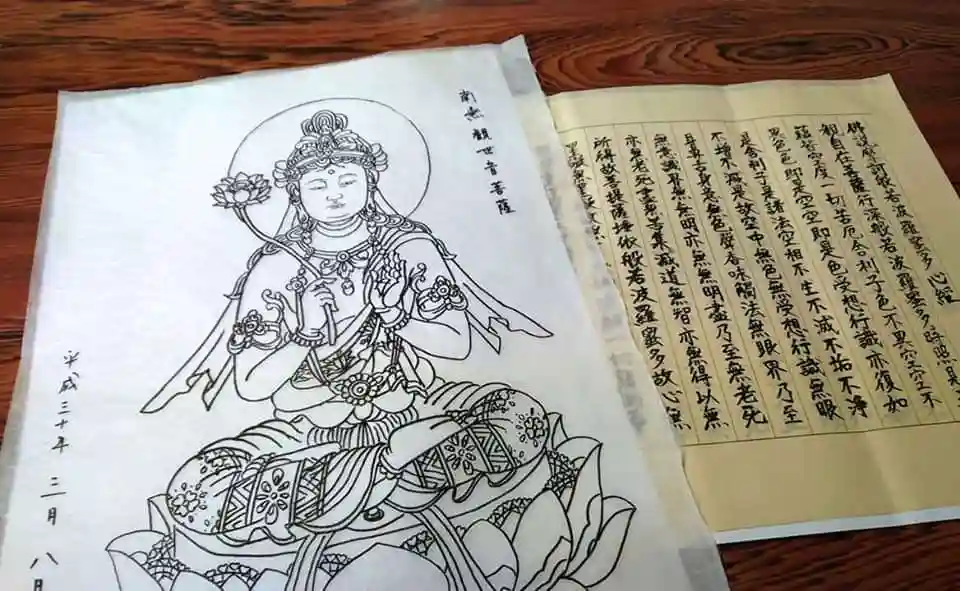 南無觀世音菩薩
平成三十年三月八日
佛説摩訶般若波羅蜜多心經
観自在菩薩行深般若波羅蜜多時照見
蘊皆空度一切苦厄舎利子色不異空空不
異色色即是空空即是色受想行識亦復如
是舎利子是諸法空相不生不滅不垢不浄
不増不減是故空中無色無受想行識無眼
耳鼻舌身意無色聲香味觸法無眼界乃至
無意識界無無明亦無無明盡乃至無老死
亦無老死盡無苦集滅道無智亦無得以無
所得故菩提薩埵依般若波羅蜜多故心無